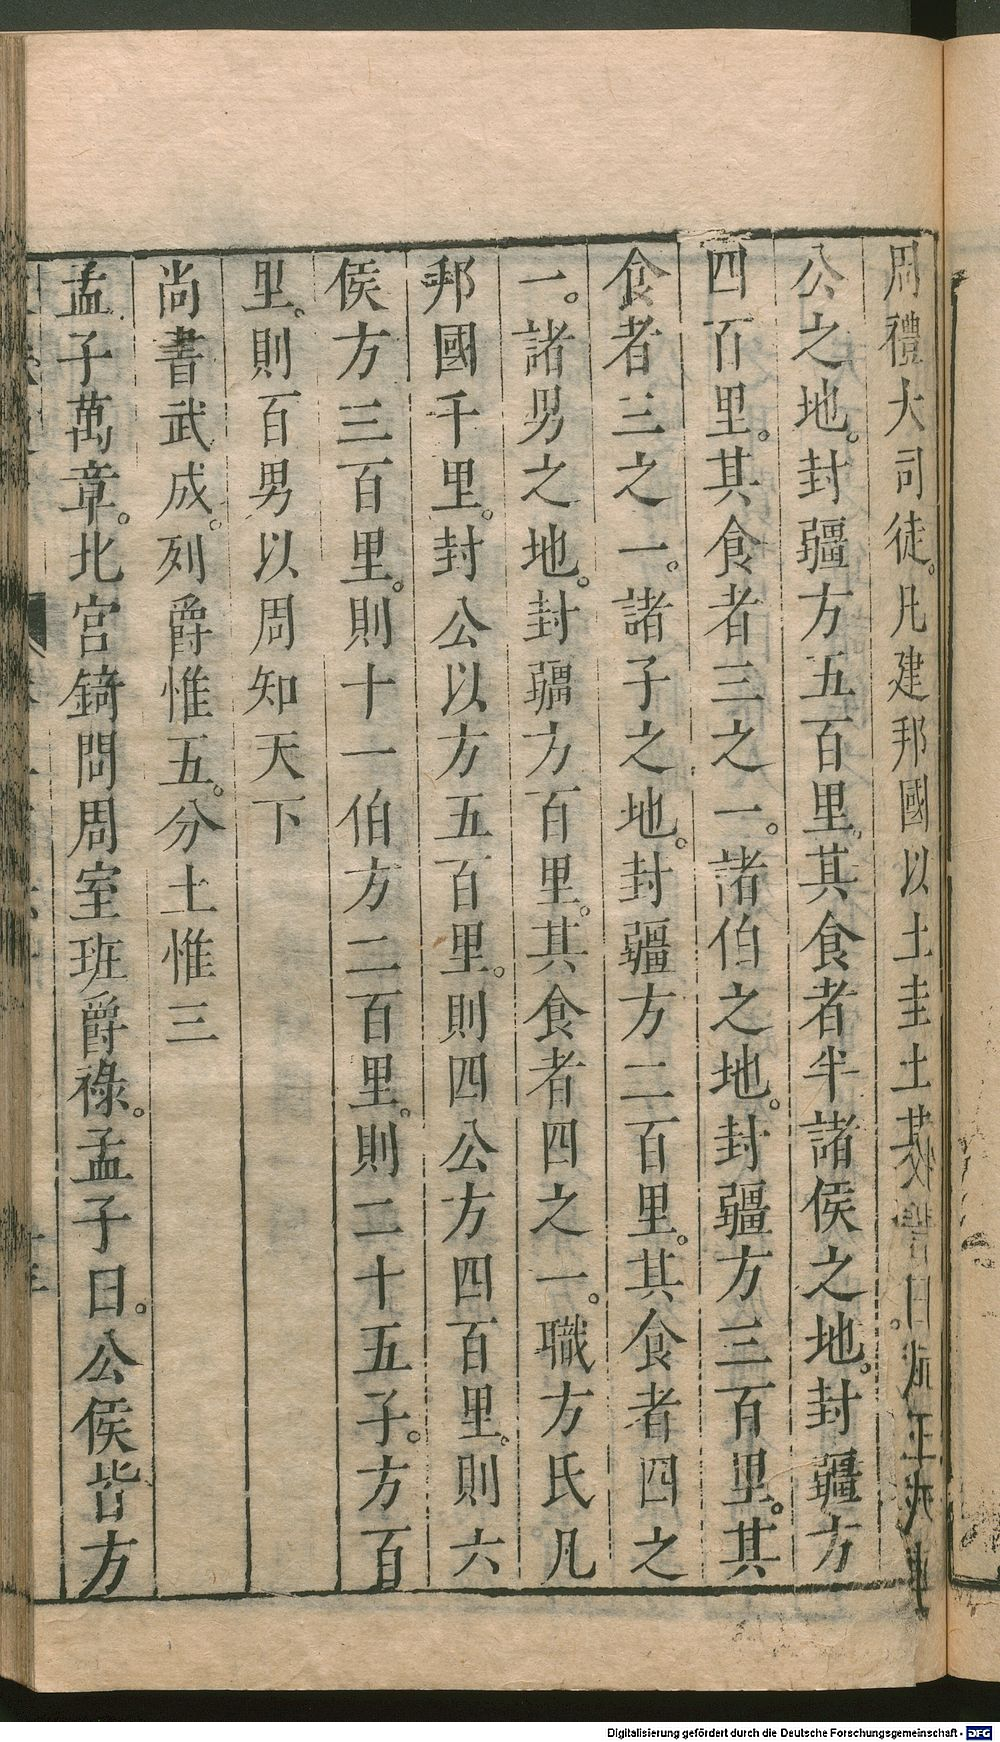 周禮大司徒。凡建邦國以土圭土其
公之地。封疆方五百里。其食者半諸侯之地。封疆方
四百里。其食者三之一。諸伯之地。封疆方三百里。其
食者三之一。諸子之地。封疆方二百里。其食者四之
一。諸男之地。封疆方百里。其食者四之一。職方氏凡
邦國千里。封公以方五百里。則四公方四百里。則六
侯方三百里。則十一伯方二百里。則二十五子。方百
里。則百男以周知天下
尚書武成。列爵惟五。分土惟三
孟子萬章。北宮錡問周室班爵祿。孟子曰。公侯皆方
Digitalisierung gefördert durch die Deutsche Forschungsgemeinschaft - DFG